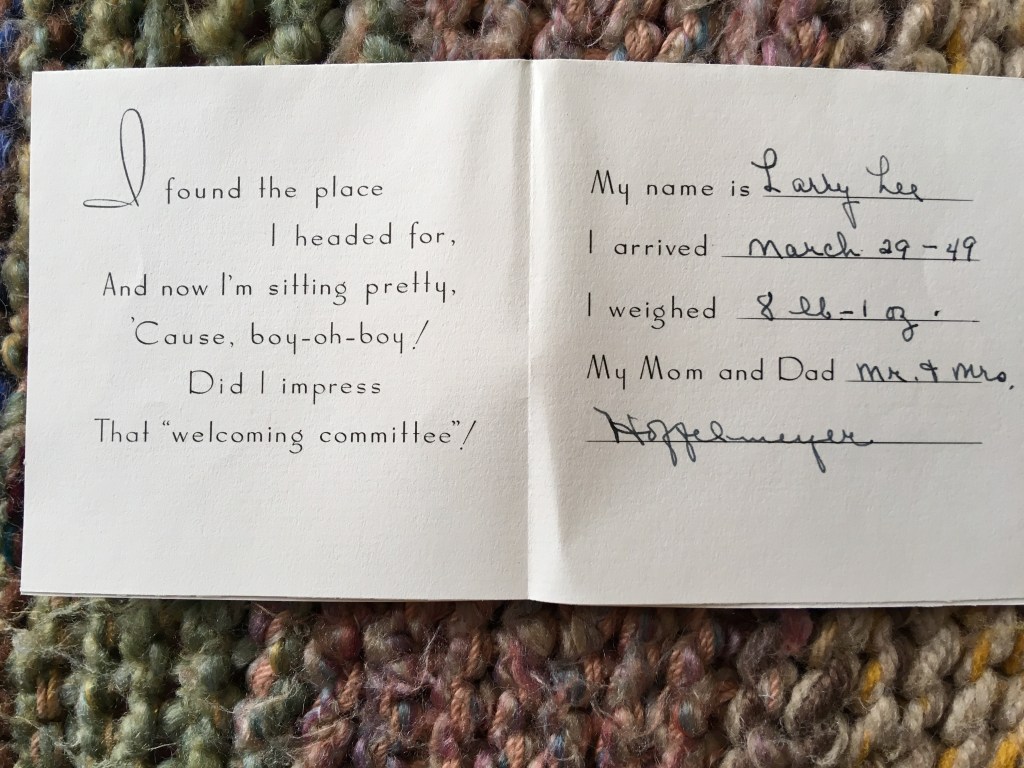 I found the place
I headed for,
And now I'm sitting pretty,
'Cause, boy-oh-boy!
Did I impress
That "welcoming committee"!
My name is Larry Lee
I arrived March 29-49
I weighed 8 lb-1 oz.
My Mom and Dad Mr. & Mrs.
Hoffelmeyer